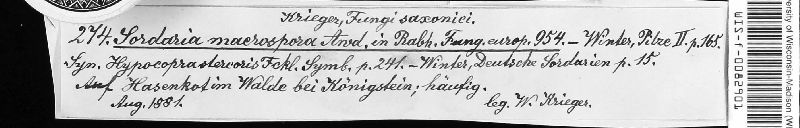 Krieger, Fungi saxonici.
274. Sordaria macrospora Awd. in Rabh. Fung. europ. 954. – Winter, Pilze II. p. 165.
Syn. Hypocopra stercoris Fckl. Symb. p. 241. – Winter, Deutsche Sordarien p. 15.
Auf Hasenkot im Walde bei Königstein; häufig.
Aug. 1881. leg. W. Krieger.
University of Wisconsin-Madison (W
WIS-f-0082901